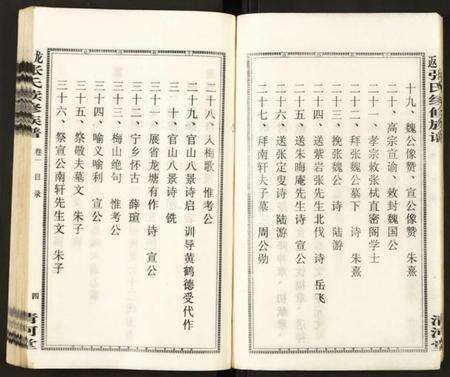 十九、魏公像赞、宣公像赞 朱熹
二十、高宗宣谕、敕封魏国公
二十一、孝宗敕张栻直密阁学士
二十二、拜张魏公墓下 诗 朱熹
二十三、挽张魏公 诗 陆游
二十四、送紫岩张先生北伐 诗 岳飞
二十五、送朱晦庵先生诗 宣公
二十六、送张定叟诗 陆游
二十七、拜南轩夫子墓 周公勋
二十八、入梅歌 惟考公
二十九、官山八景诗启 训导黄鹤德受代作
三十、官山八景诗 铣
三十一、展省龙塘有作 诗 宣公
三十二、宁乡怀古 薛瑄
三十三、梅山绝句 惟考公
三十四、喻义喻利 宣公
三十五、祭敬夫墓文 朱子
三十六、祭宣公南轩先生文 朱子
张氏续修族谱
卷一 目录
四
清河堂